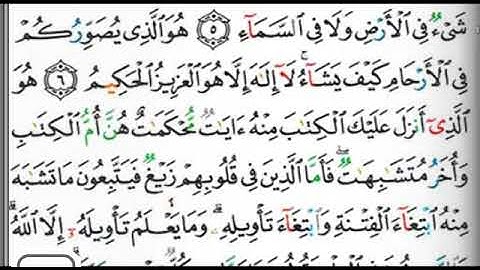 شَىْءٌ فِى ٱلْأَرْضِ وَلَا فِى ٱلسَّمَآءِ ٥ هُوَ ٱلَّذِى يُصَوِّرُكُمْ
فِى ٱلْأَرْحَامِ كَيْفَ يَشَآءُ ۚ لَآ إِلَٰهَ إِلَّا هُوَ ٱلْعَزِيزُ ٱلْحَكِيمُ ٦ هُوَ
ٱلَّذِىٓ أَنزَلَ عَلَيْكَ ٱلْكِتَٰبَ مِنْهُ ءَايَٰتٌ مُّحْكَمَٰتٌ هُنَّ أُمُّ ٱلْكِتَٰبِ
وَأُخَرُ مُتَشَٰبِهَٰتٌ ۖ فَأَمَّا ٱلَّذِينَ فِى قُلُوبِهِمْ زَيْغٌ فَيَتَّبِعُونَ مَا تَشَٰبَهَ
مِنْهُ ٱبْتِغَآءَ ٱلْفِتْنَةِ وَٱبْتِغَآءَ تَأْوِيلِهِۦ ۗ وَمَا يَعْلَمُ تَأْوِيلَهُۥٓ إِلَّا ٱللَّهُ ۗ